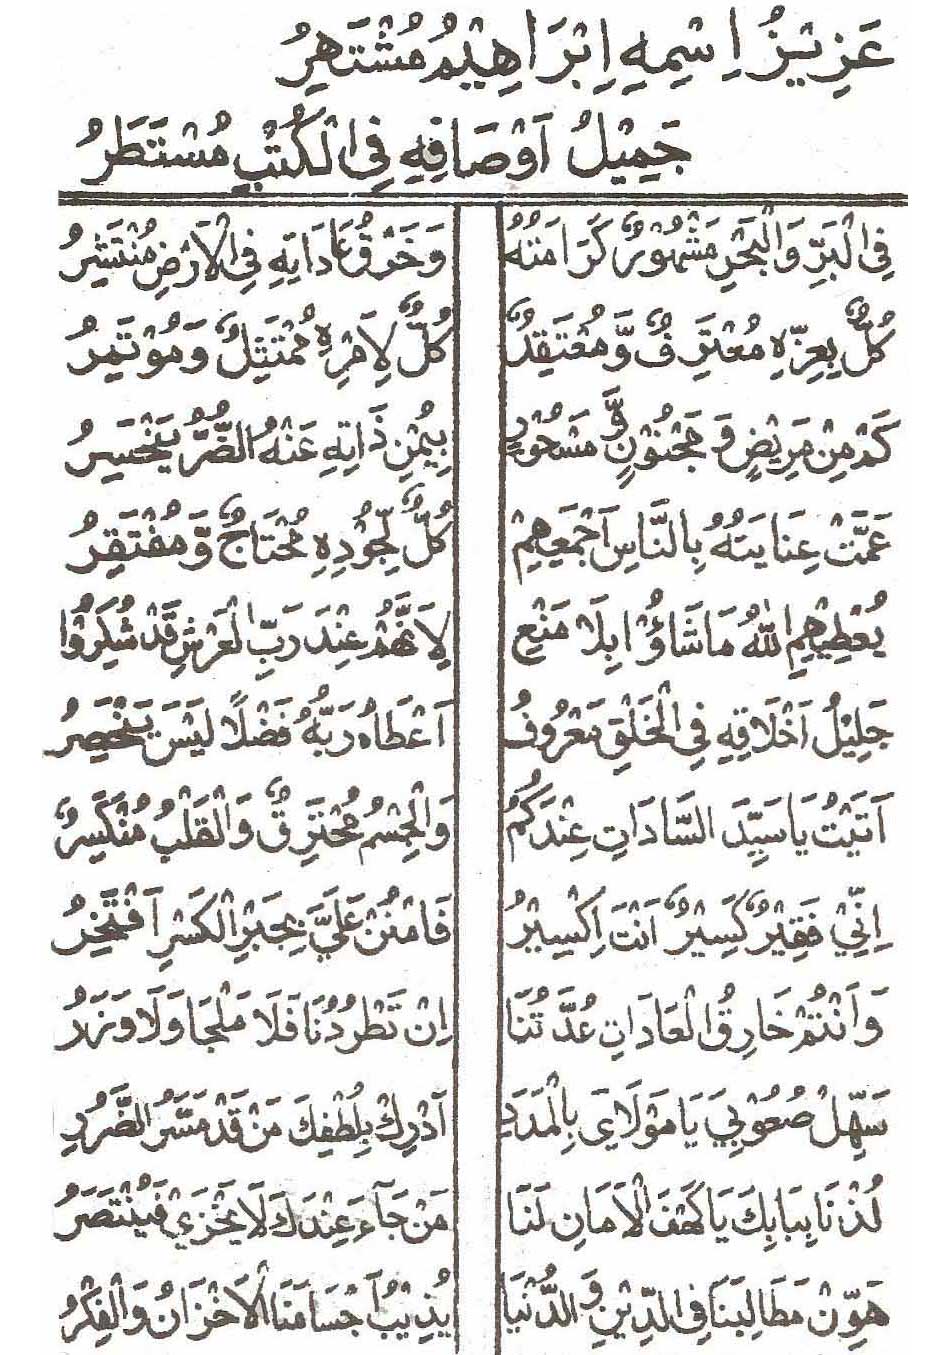 عَزِيْزُ اِسْمِهِ اِبْرَاهِيْمُ مُشْتَهِرُ
جَمِيْلُ اَوْصَافِهِ فِى الْكُتْبِ مُسْتَطَرُ
فِى الْبَرِّ وَالْبَحْرِ مَشْهُوْرٌ كَرَامَتُهُ وَخَرْقُ عَادَاتِهِ فِى الْاَرْضِ مُنْتَشِرُ
كُلٌّ بِعِزِّهِ مُعْتَرِفٌ وَّمُعْتَقِدٌ كُلٌّ لِاَمْرِهِ مُمْتَثِلٌ وَمُؤْتَمِرُ
كَمْ مِنْ مَرِيْضٍ وَمَجْنُوْنٍ وَّمَسْحُوْرٍ بِيُمْنِ ذَاتِهِ عَنْهُ الضُّرُّ يَنْحَسِرُ
عَمَّتْ عِنَايَتُهُ بِالنَّاسِ اَجْمَعِهِمْ كُلٌّ لِّجُوْدِهِ مُحْتَاجٌ وَّمُفْتَقِرُ
يُعْطِيْهِمِ اللهُ مَا شَاؤُا بِلَا مَنْعٍ لِاَنَّهُمْ عِنْدَ رَبِّ الْعَرْشِ قَدْ شُكِرُوْا
جَلِيْلُ اَخْلَاقِهِ فِى الْخَلْقِ مَعْرُوفُ اَعْطَاهُ رَبُّهُ فَضْلًا لَيْسَ يَنْحَصِرُ
اَتَيْتُ يَا سَيِّدَ السَّادَاتِ عِنْدَكُمُ وَالْجِسْمُ مُحْتَرِقٌ وَالْقَلْبُ مُنْكَسِرٌ
اِنِّيْ فَقِيْرٌ كَسِيْرٌ اَنْتَ اِكْسِيْرُ فَامْنُنْ عَلَيَّ بِجَبْرِ الْكَسْرِ اَفْتَخِرُ
وَاَنْتُمْ خَارِقُ الْعَادَاتِ عُدَّتُنَا اِنْ تَطْرُدُنَا فَلَا مَلْجَا وَلَا وَزَرُ
سَهِّلْ صُعُوْبِيْ يَا مَوْلَايَ بِالْمَدَدِ اَدْرِكْ بِلُطْفِكَ مَنْ قَدْ مَسَّهُ الضَّرَرِ
لُذْنَا بِبَابِكَ يَا كَهْفَ الْاَمَانِ لَنَا مَنْ جَآءَ عِنْدَكَ لَا يَخْزَيْ فَيُنْتَصَرُ
هَوِّنْ مَطَالِبَنَا فِى الدِّيْنِ وَالدُّنْيَا يُذِيْبُ اَجْسَامَنَا الْاَحْزَانُ وَالْفِكَرُ